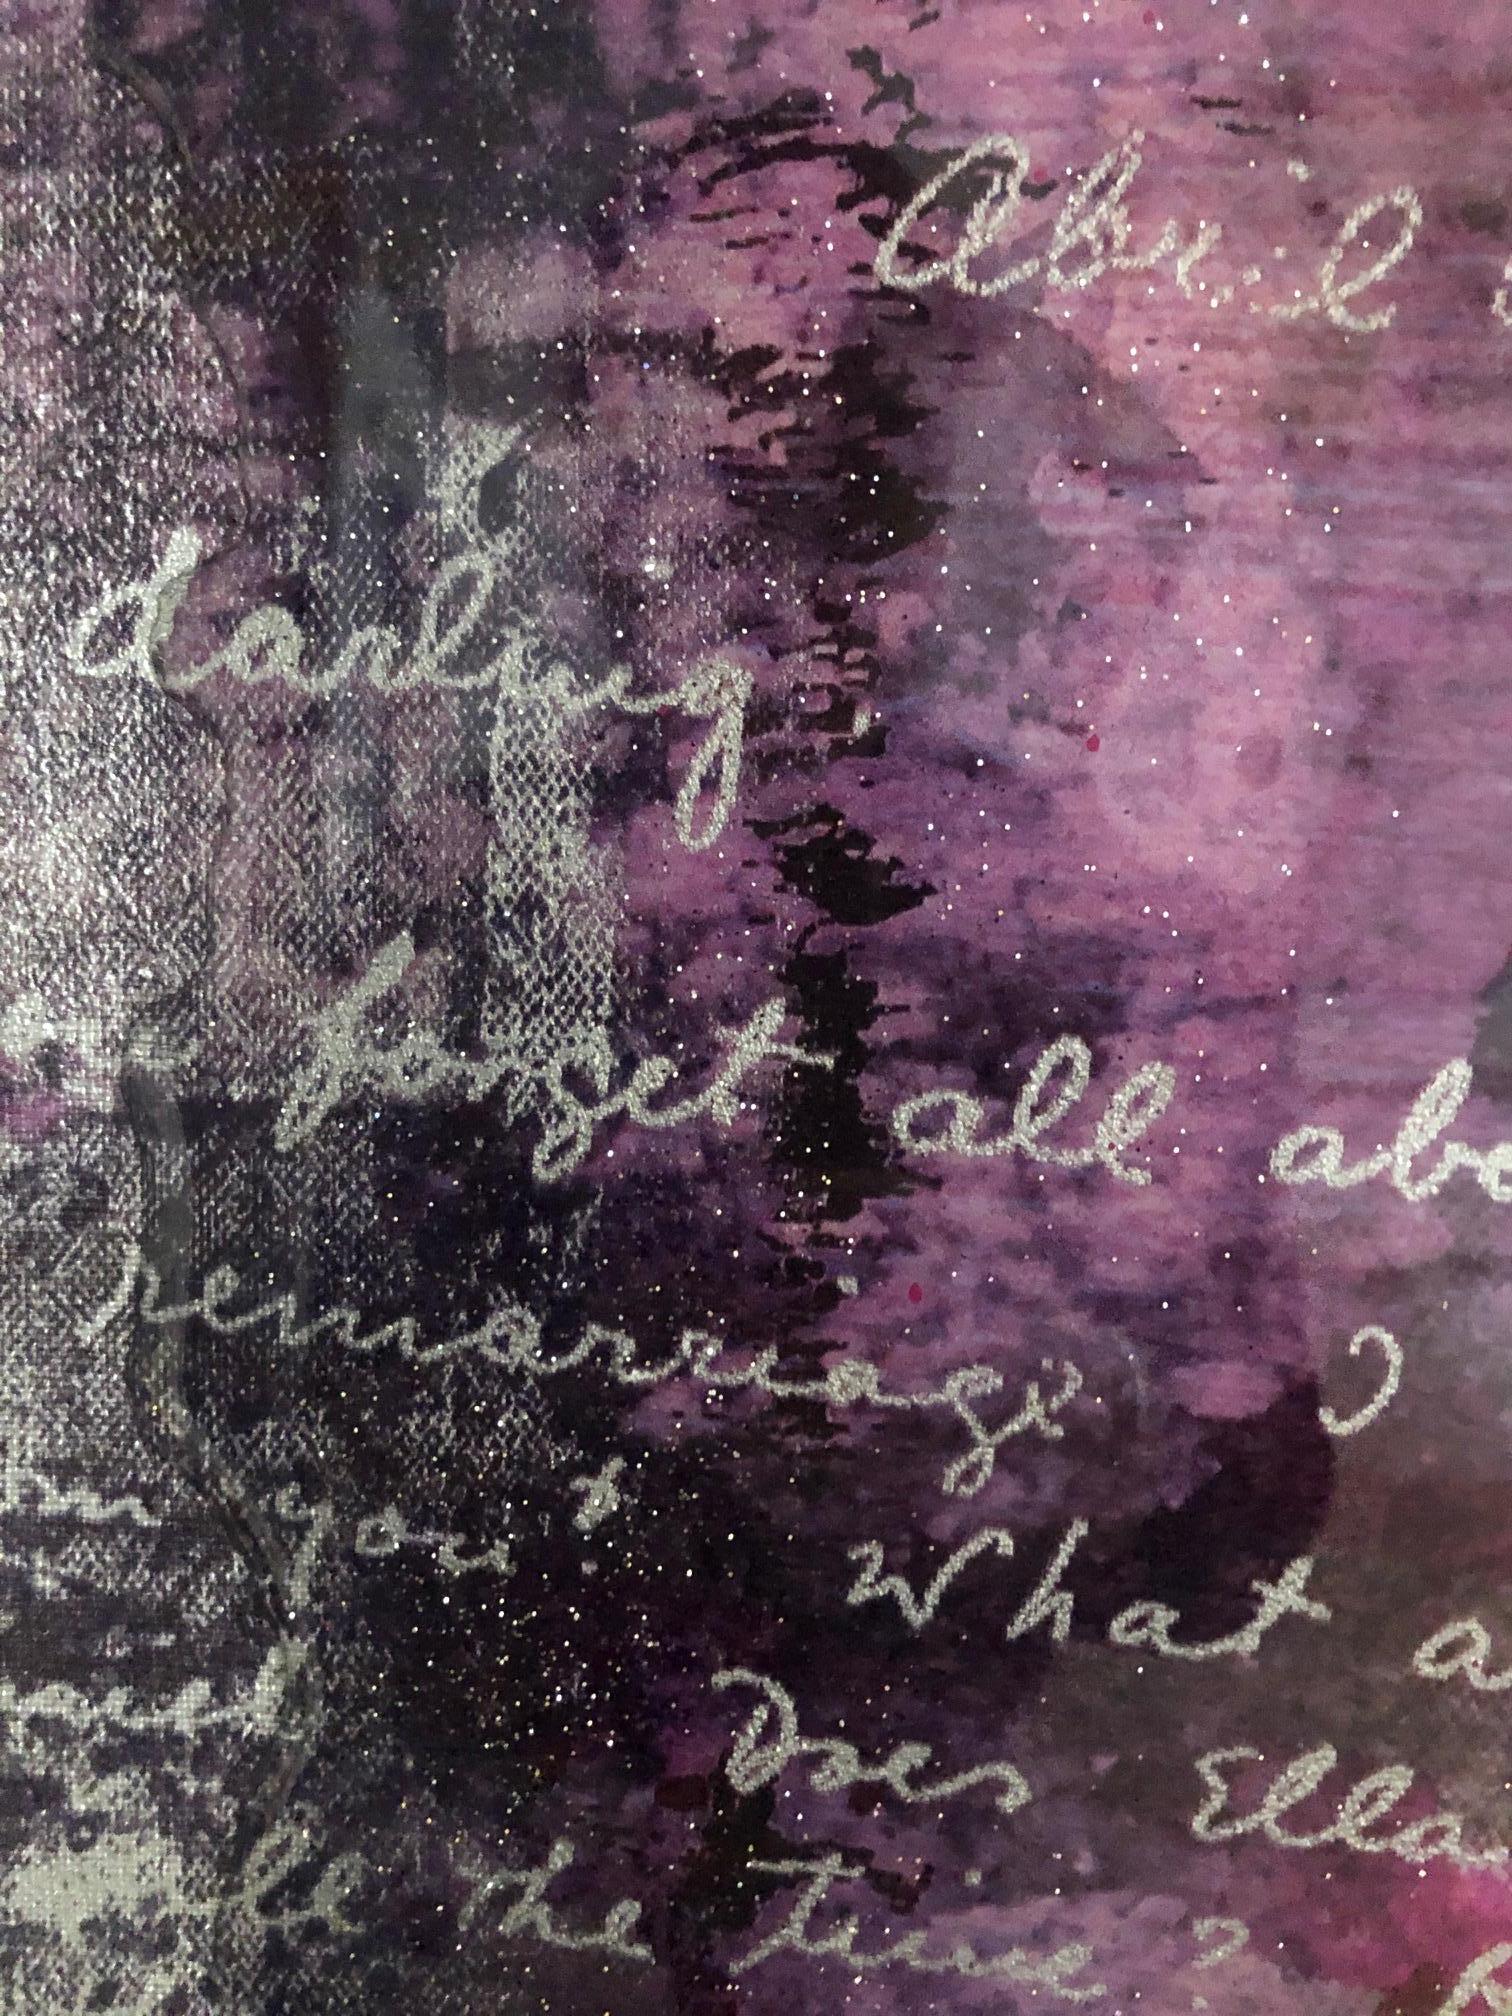 April
darling
forget all abo
remarriage ?
you? What a
Does Ella
be the time?